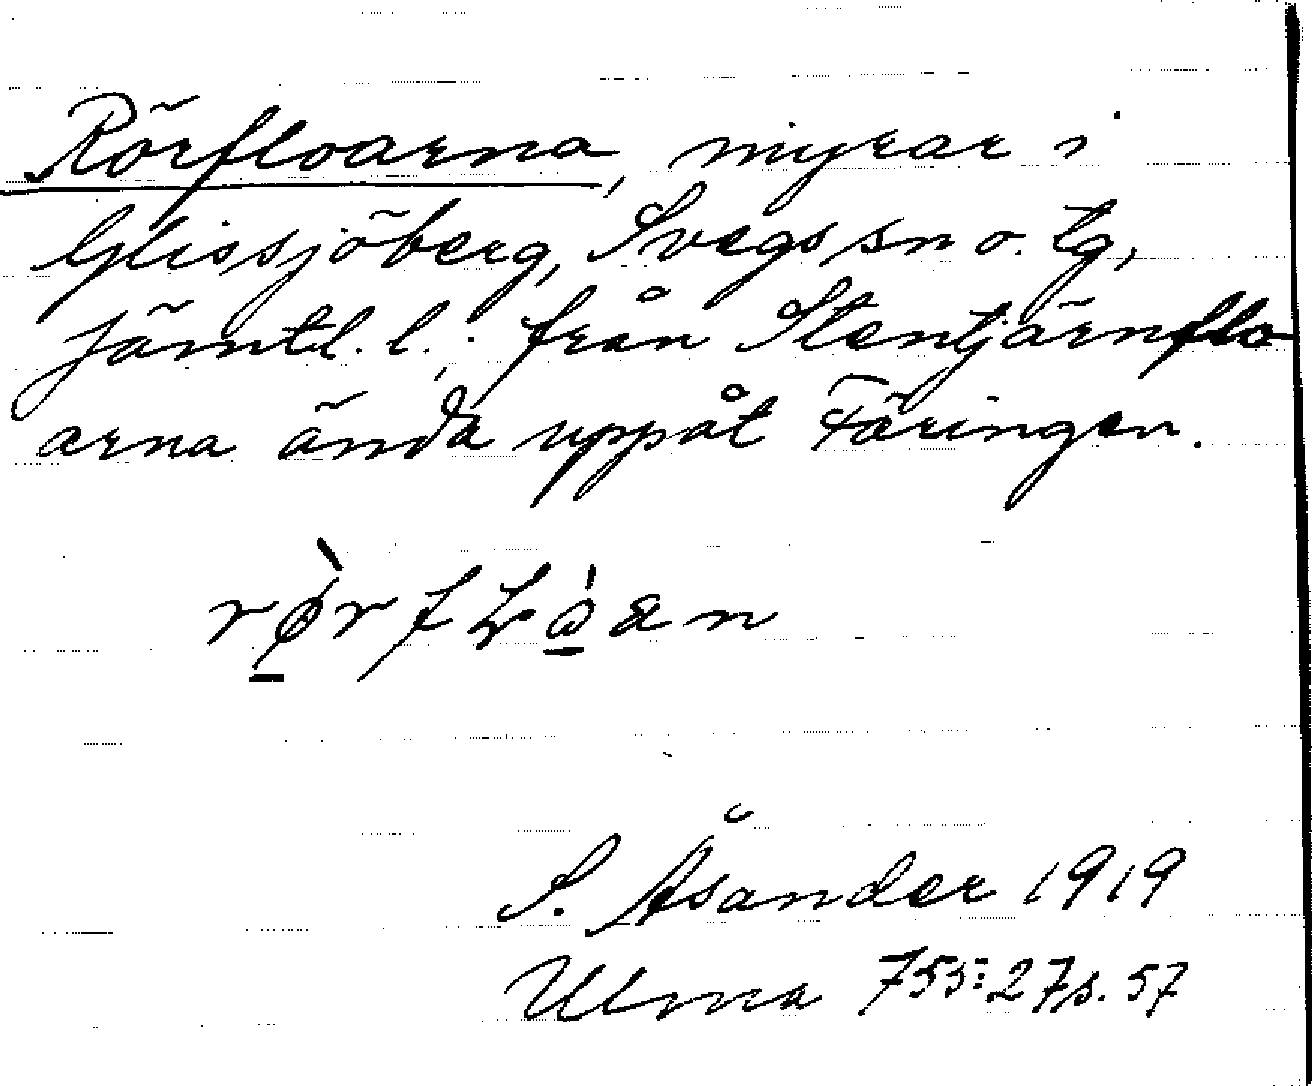 Rörfloarna, myrar i
Glissjöberg, Svegs sn o. tg,
Jämtl. l.: från Stentjärnflo
arna ända uppåt Färingen.
S. Åsander 1919
Ulma 755:27 s. 57